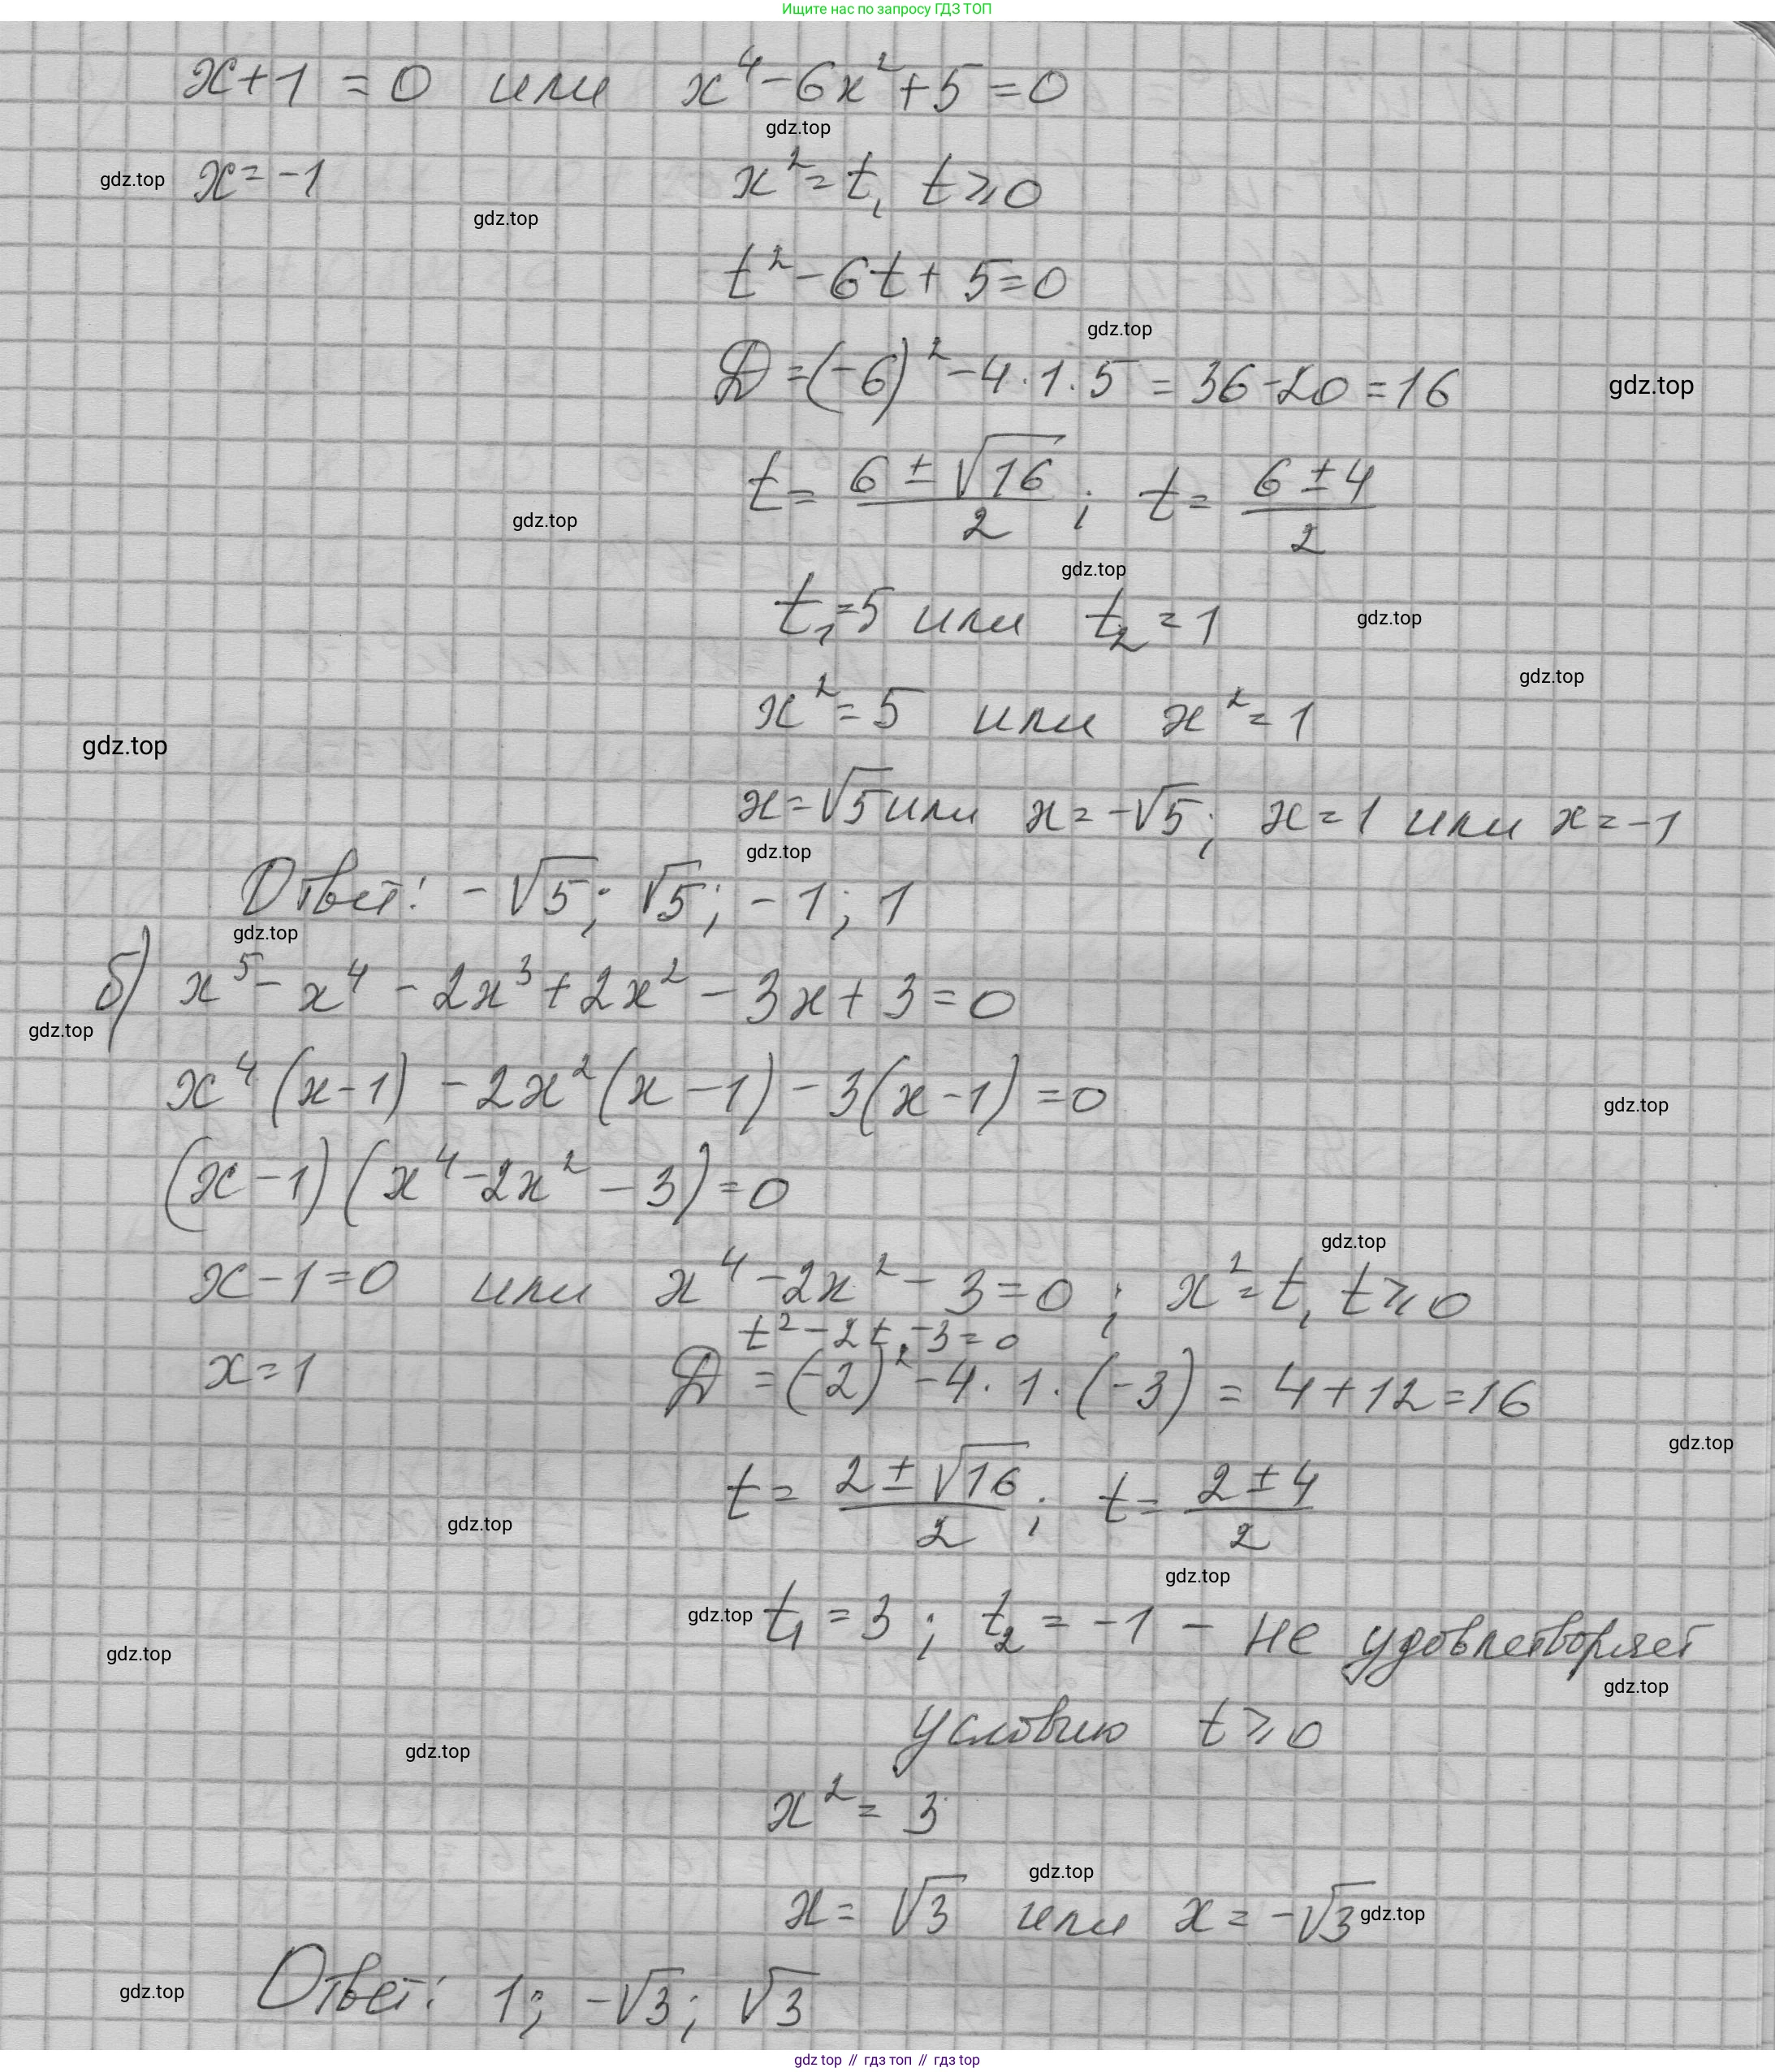 Ищите нас по запросу ГДЗ ТОП
x+1=0 или x⁴-6x²+5=0
gdz.top
gdz.top x=-1 x²=t, t⩾0
gdz.top
t²-6t+5=0
gdz.top
Д=(-6)²-4·1·5=36-20=16 gdz.top
t=(6±√16)/2; t=(6±4)/2
gdz.top
gdz.top
t₁=5 или t₂=1 gdz.top
gdz.top
x²=5 или x²=1
gdz.top
x=√5 или x=-√5; x=1 или x=-1
gdz.top
Ответ: -√5; √5; -1; 1
gdz.top
б) x⁵-x⁴-2x³+2x²-3x+3=0
gdz.top
x⁴(x-1)-2x²(x-1)-3(x-1)=0
gdz.top
(x-1)(x⁴-2x²-3)=0
gdz.top
x-1=0 или x⁴-2x²-3=0; x²=t, t⩾0
t²-2t-3=0
x=1 Д=(-2)²-4·1·(-3)=4+12=16
gdz.top
t=(2±√16)/2; t=(2±4)/2
gdz.top
gdz.top
gdz.top t₁=3; t₂=-1 - не удовлетворяет
gdz.top
gdz.top
условию t⩾0
gdz.top
x²=3
gdz.top
x=√3 или x=-√3 gdz.top
gdz.top Ответ: 1; -√3; √3
gdz top // гдз топ // гдз top